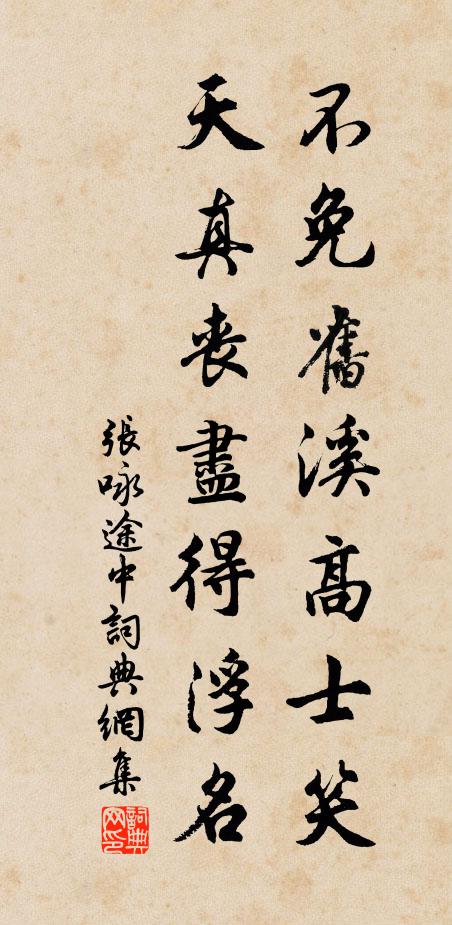 不免舊溪高士笑
天真喪盡得浮名
張咏途中詞典網集
詞典网印